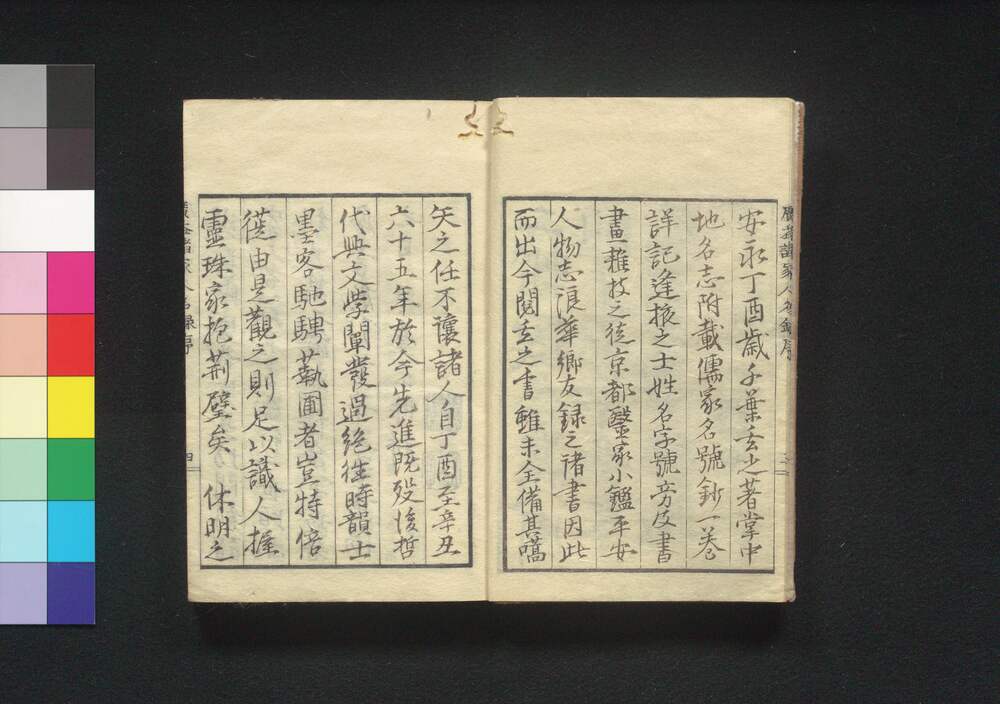 安永丁酉歳千葉玄之著掌中
地名志附載儒家名號鈔一卷
詳記逢掖之士姓名字號旁及書
畫雜技之徒京都醫家小鑑平安
人物志浪華鄉友録之諸書因此
而出今閱玄之書雖未全備其嚆
矢之任不讓諸人自丁酉至辛丑
六十五年於今先進既歿後哲
代興文学闡發過絶往時韻士
墨客馳騁蓺圃者豈特倍
蓰由是觀之則足以識人握
靈珠家抱荊璧矣　休明之
四